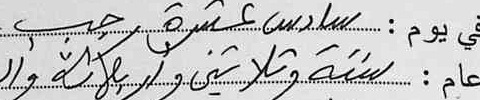 في يوم : سادس عشرة رجب
عام : ستة وثلاثين وأربعمائة وال